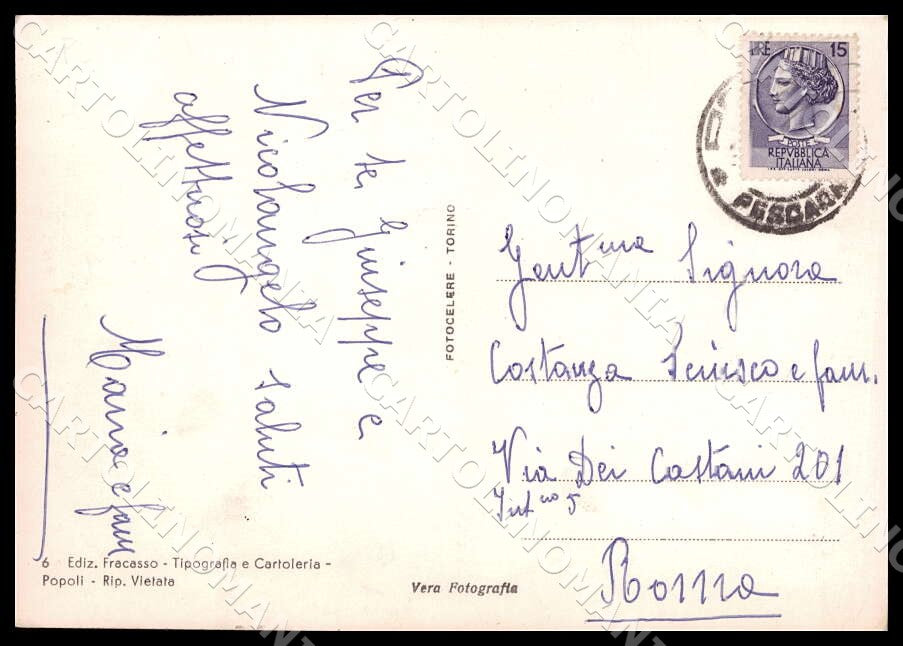 Per te, Giuseppe e
Nicolangelo saluti
affettuosi
Maria e fam
FOTOCELERE - TORINO
LIRE 15
POSTE
REPVBBLICA
ITALIANA
PESCARA
Gent.ma Signora
Costanza e fam.
Via Dei Castani 201
Int no 5
Roma
6 Ediz. Fracasso - Tipografia e Cartoleria -
Popoli - Rip. Vietata
Vera Fotografia
CARTOLINOMANIA